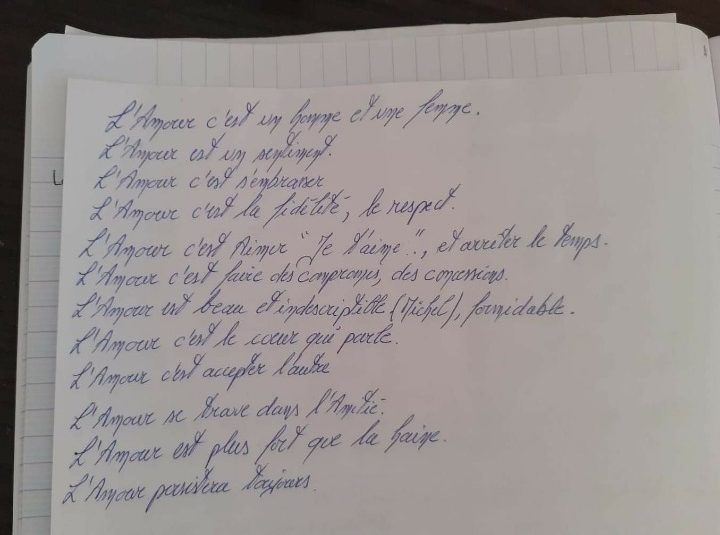 L'Amour c'est un homme et une femme.
L'Amour est un sentiment.
L'Amour c'est s'embrasser
L'Amour c'est la fidélité, le respect.
L'Amour c'est Aimer "Je t'aime!", et arrêter le temps.
L'Amour c'est faire des compromis, des concessions.
L'Amour est beau et indescriptible (Michel), formidable.
L'Amour c'est le cœur qui parle.
L'Amour c'est accepter l'autre
L'Amour se trouve dans l'Amitié.
L'Amour est plus fort que la haine.
L'Amour persistera toujours.